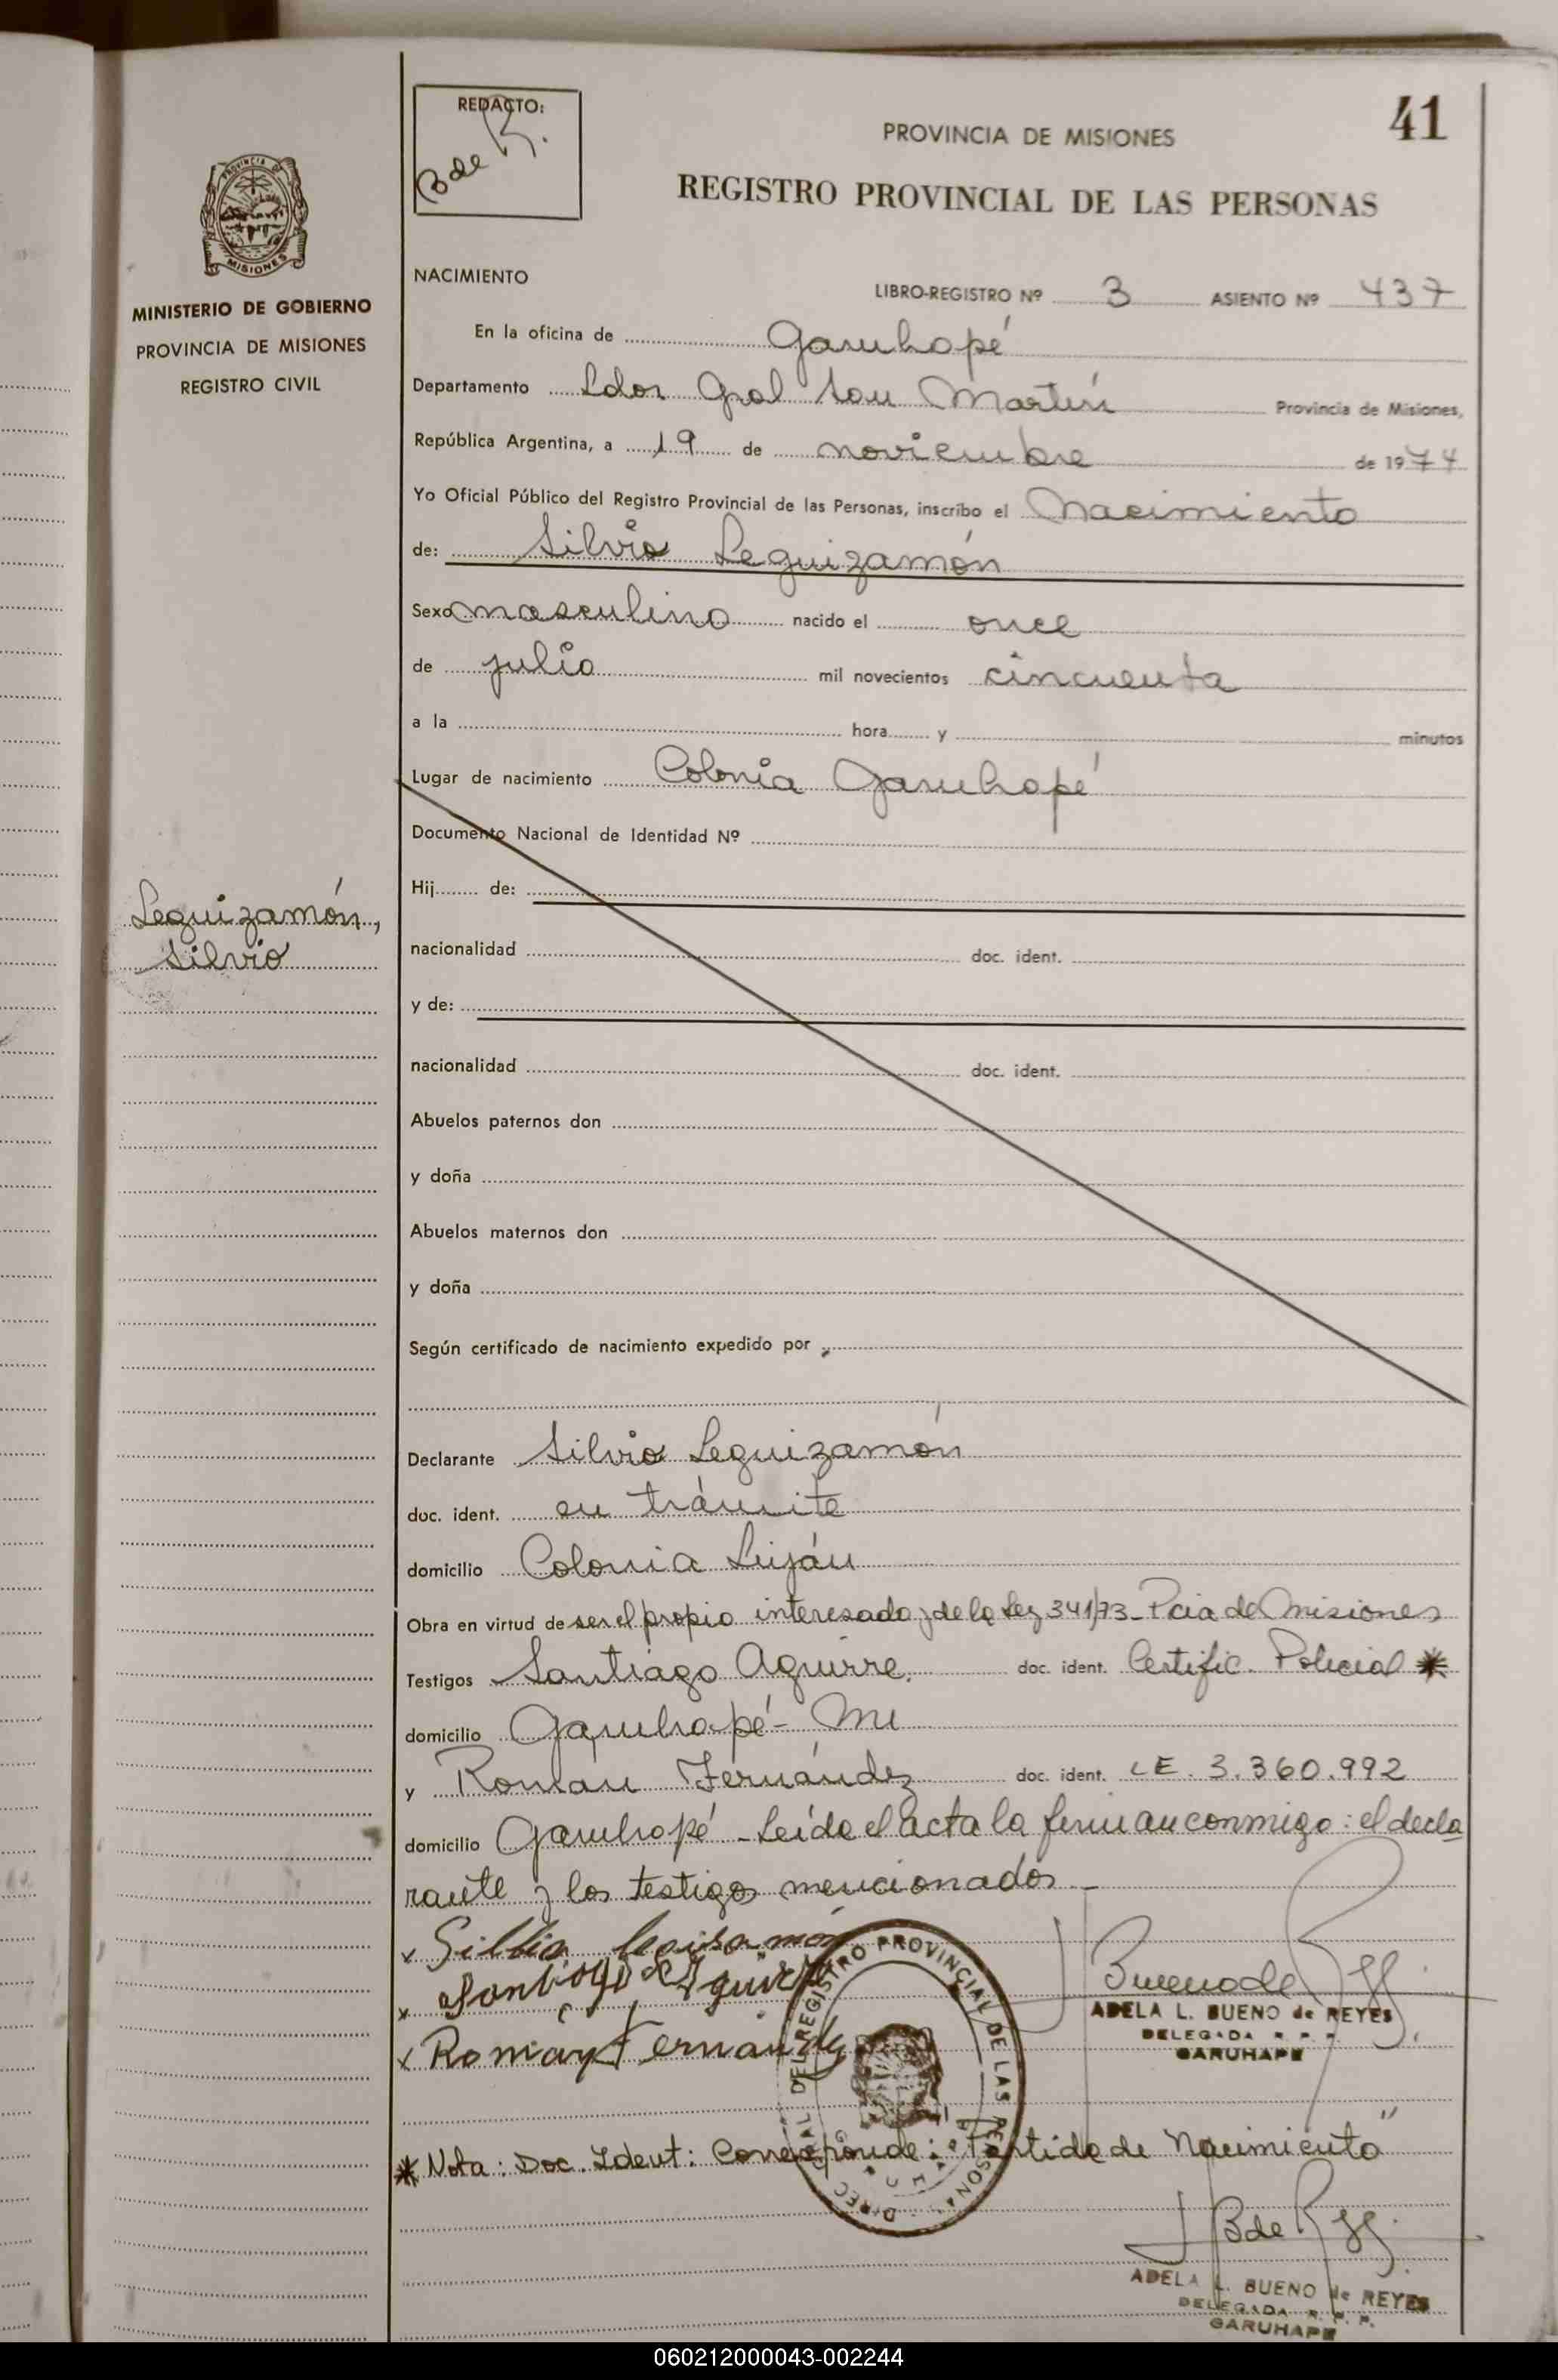 REDACTO:
B de R.
41
PROVINCIA DE MISIONES
REGISTRO PROVINCIAL DE LAS PERSONAS
PROVINCIA DE
MISIONES
MINISTERIO DE GOBIERNO
PROVINCIA DE MISIONES
REGISTRO CIVIL
NACIMIENTO
LIBRO-REGISTRO Nº 3 ASIENTO Nº 437
En la oficina de Garuhapé
Departamento Ldor Gral San Martín Provincia de Misiones,
República Argentina, a 19 de noviembre de 1974
Yo Oficial Público del Registro Provincial de las Personas, inscribo el Nacimiento
de: Silvio Leguizamón
Sexo masculino nacido el once
de julio mil novecientos cincuenta
a la hora y minutos
Lugar de nacimiento Colonia Garuhapé
Documento Nacional de Identidad Nº
Hij de:
Leguizamón,
Silvio
nacionalidad doc. ident.
y de:
nacionalidad doc. ident.
Abuelos paternos don
y doña
Abuelos maternos don
y doña
Según certificado de nacimiento expedido por
Declarante Silvio Leguizamón
doc. ident. en trámite
domicilio Colonia Luján
Obra en virtud de ser el propio interesado y de la Ley 341/73 - Pcia de Misiones
Testigos Santiago Aguirre. doc. ident. Certific. Policial *
domicilio Garuhapé - Mi
y Román Fernández doc. ident. LE. 3.360.992
domicilio Garuhapé - Leída el acta la firman conmigo: el decla
rante y los testigos mencionados -
x Silbio
x Santiago Aguirre
x Román Fernandez
Bueno de
ADELA L. BUENO de REYES
DELEGADA R. P. P.
GARUHAPE
REGISTRO PROVINCIAL DE LAS PERSONAS
* Nota: Doc. Ident: Corresponde: "Partida de Nacimiento"
B de R
ADELA L. BUENO de REYES
DELEGADA R. P. P.
GARUHAPE
060212000043-002244